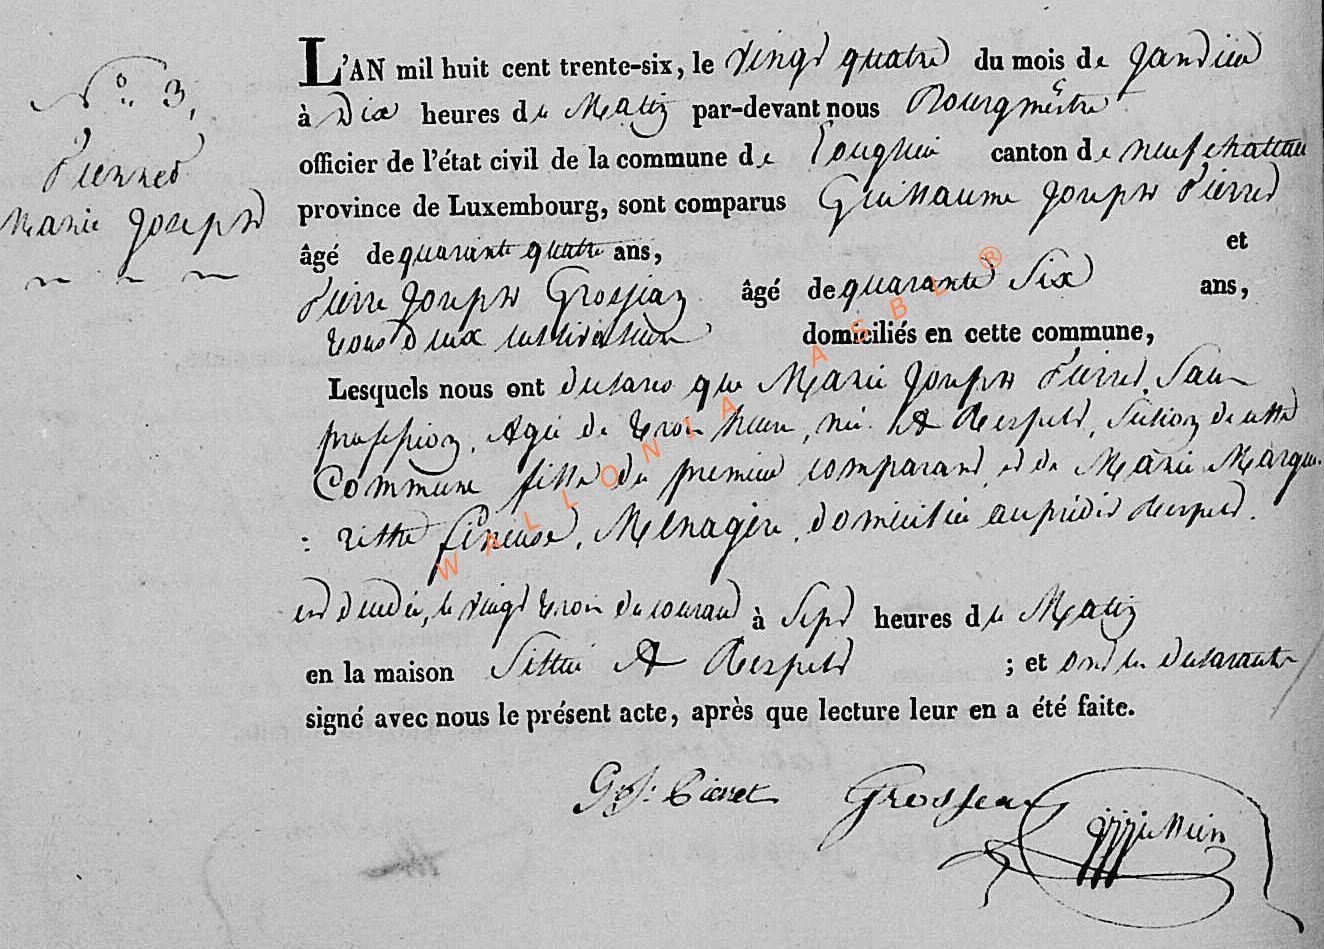 L'AN mil huit cent trente-six, le vingt quatre du mois de Janvier
N° 3.
à Dix heures du Matin par-devant nous Bourgmêstre
officier de l'état civil de la commune de Longlier canton de neufchateau
Pierret
Marie Joseph
province de Luxembourg, sont comparus Guillaume Joseph Pierret
âgé de quarante quatre ans, et
Pierre Joseph Grosjean âgé de quarante Six ans,
tous deux cultivateurs domiciliés en cette commune,
Lesquels nous ont declaré que Marie Joseph Pierret, Sans
profession, Agée de trois heures, née A Respelt, Section de cette
Commune fille du premier comparant et de Marie Margue-
: ritte, Ménagère, domiciliée audit Respelt.
est decedée, le vingt trois du courant à Sept heures du Matin
en la maison Sittuée A Respelt ; et ont les declarants
signé avec nous le présent acte, après que lecture leur en a été faite.
G. J. Pierret Grosjean
WALLONIA ASBL ®